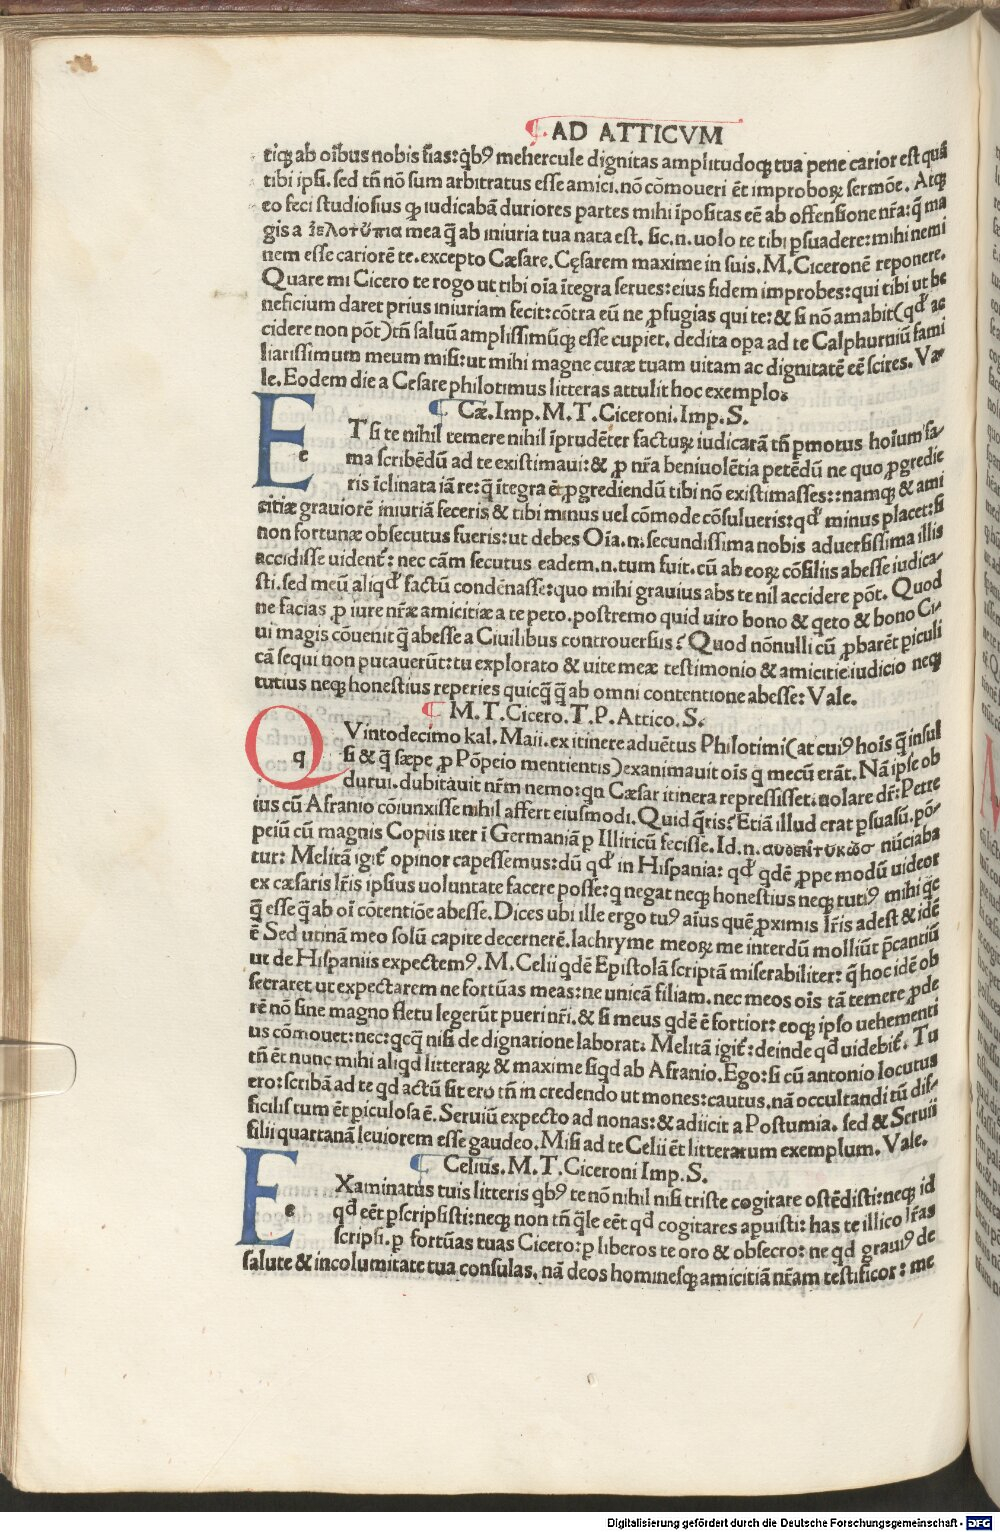 AD ATTICVM
tiqꝫ ab oībus nobis t̄ias: q̇bꝰ mehercule dignitas amplitudoqꝫ tua pene carior est quā
tibi ipsi. sed tn̄ nō sum arbitratus esse amici. nō cōmoueri ēt improboꝝ sermōe. Atqꝫ
eo feci studiosius ꝙ iudicabā duriores partes mihi īpositas eē ab offensione nr̄a: q̄ ma
gis a ἰελοτύπια mea q̄ ab iniuria tua nata est. sic. n. uolo te tibi ꝑsuadere: mihi nemi
nem esse cariorē te. excepto Cæsare. Cęsarem maxime in suis. M. Ciceronē reponere.
Quare mi Cicero te rogo ut tibi oīa ītegra serues: eius fidem improbes: qui tibi ut be
neficium daret prius iniuriam fecit: cōtra eū ne ꝓfugias qui te: & si nō amabit (qđ ac
cidere non pōt) tn̄ saluū amplissimūqꝫ esse cupiet. dedita oꝑa ad te Calphurniū fami
liarissimum meum misi: ut mihi magne curæ tuam uitam ac dignitatē eē scires. Va
le. Eodem die a Cesare philotimus litteras attulit hoc exemplo.
Cæ. Imp. M. T. Ciceroni. Imp. S.
E e T si te nihil temere nihil īprudēter factuꝝ iudicarā tn̄ ꝑmotus hoīum fa-
ma scribēdū ad te existimaui: & ꝓ nr̄a beniuolētia petēdū ne quo ꝓgredie
ris īclinata iā re: q̄ ītegra ēt ꝓgrediendū tibi nō existimasses:: namqꝫ & ami
citiæ grauiorē iniuriā feceris & tibi minus uel cōmode cōsulueris: qđ minus placet: si
non fortunæ obsecutus fueris: ut debes Oīa. n. secundissima nobis aduersissima illis
accidisse uident᷑: nec cām secutus eadem. n. tum fuit. cū ab eoꝝ cōsiliis abesse iudica-
sti. sed meū aliqđ factū condēnasse: quo mihi grauius abs te nīl accidere pōt. Quod
ne facias ꝓ iure nr̄æ amicitiæ a te peto. postremo quid uiro bono & q̇eto & bono Ci-
ui magis cōuenit q̄ abesse a Ciuilibus controuersiis? Quod nōnulli cū ꝓbarēt ꝑiculi
cā sequi non putauerūt: tu explorato & uite meæ testimonio & amicitie iudicio neqꝫ
tutius neqꝫ honestius reperies quicq̄ q̄ ab omni contentione abesse: Vale.
M. T. Cicero. T. P. Attico. S.
Q q Vintodecimo kal. Maii. ex itinere aduētus Philotimi (at cuiꝰ hoīs q̄ insul
si & q̄ sæpe ꝓ Pōpeio mentientis) exanimauit oīs q̇ mecū erāt. Nā ipse ob
durui. dubitauit nr̄m nemo: qn̄ Cæsar itinera repressisset. uolare dr̄: Petre
ius cū Afranio cōiunxisse nihil affert eiusmodi. Quid q̄ris? Etiā illud erat ꝑsuasū. pō-
peiū cū magnis Copiis iter ī Germaniā ꝑ Illiricū fecisse. Id. n. αυθεντυκωσ nūciaba
tur: Melitā igit᷑ opinor capessemus: dū qđ in Hispania: qđ qdē ꝓpe modū uideor
ex cæsaris lr̄is ipsius uoluntate facere posse: q̇ negat neqꝫ honestius neqꝫ tutiꝰ mihi q̇c
q̄ esse q̄ ab oī cōtentiōe abesse. Dices ubi ille ergo tuꝰ aīus quē ꝓximis lr̄is adest & idē
ē Sed utinā meo solū capite decernerē. lachryme meoꝝ me interdū molliūt p̄cantiū
ut de Hispaniis expectemꝰ. M. Celii qdē Epistolā scriptā miserabiliter: q̄ hoc idē ob
secraret ut expectarem ne fortūas meas: ne unicā filiam. nec meos oīs tā temere ꝓde
rē nō sine magno fletu legerūt pueri nr̄i. & si meus qdē ē fortior: eoqꝫ ipso uehementi
us cōmouet: nec: q̇cq̄ nisi de dignatione laborat. Melitā igit᷑: deinde qđ uidebit᷑. Tu
tn̄ ēt nunc mihi aliqd litteraꝝ & maxime siqd ab Afranio. Ego: si cū antonio locutus
ero: scribā ad te qd actū sit ero tn̄ in credendo ut mones: cautus. nā occultandi tū dif-
ficilis tum ēt ꝑiculosa ē. Seruiū expecto ad nonas: & adiicit a Postumia. sed & Seruii
filii quartanā leuiorem esse gaudeo. Misi ad te Celii ēt litterarum exemplum. Vale.
Celius. M. T. Ciceroni Imp. S.
E e Xaminatus tuis litteris q̇bꝰ te nō nihil nisi triste cogitare ostēdisti: neqꝫ id
qđ eēt ꝑscripsisti: neqꝫ non tn̄ q̄le eēt qđ cogitares aꝑuisti: has te illico lr̄as
scripsi. ꝑ fortūas tuas Cicero: ꝑ liberos te oro & obsecro: ne qd grauiꝰ de
salute & incolumitate tua consulas. nā deos hominesqꝫ amicitiā nr̄am testificor: me
Digitalisierung gefördert durch die Deutsche Forschungsgemeinschaft - DFG